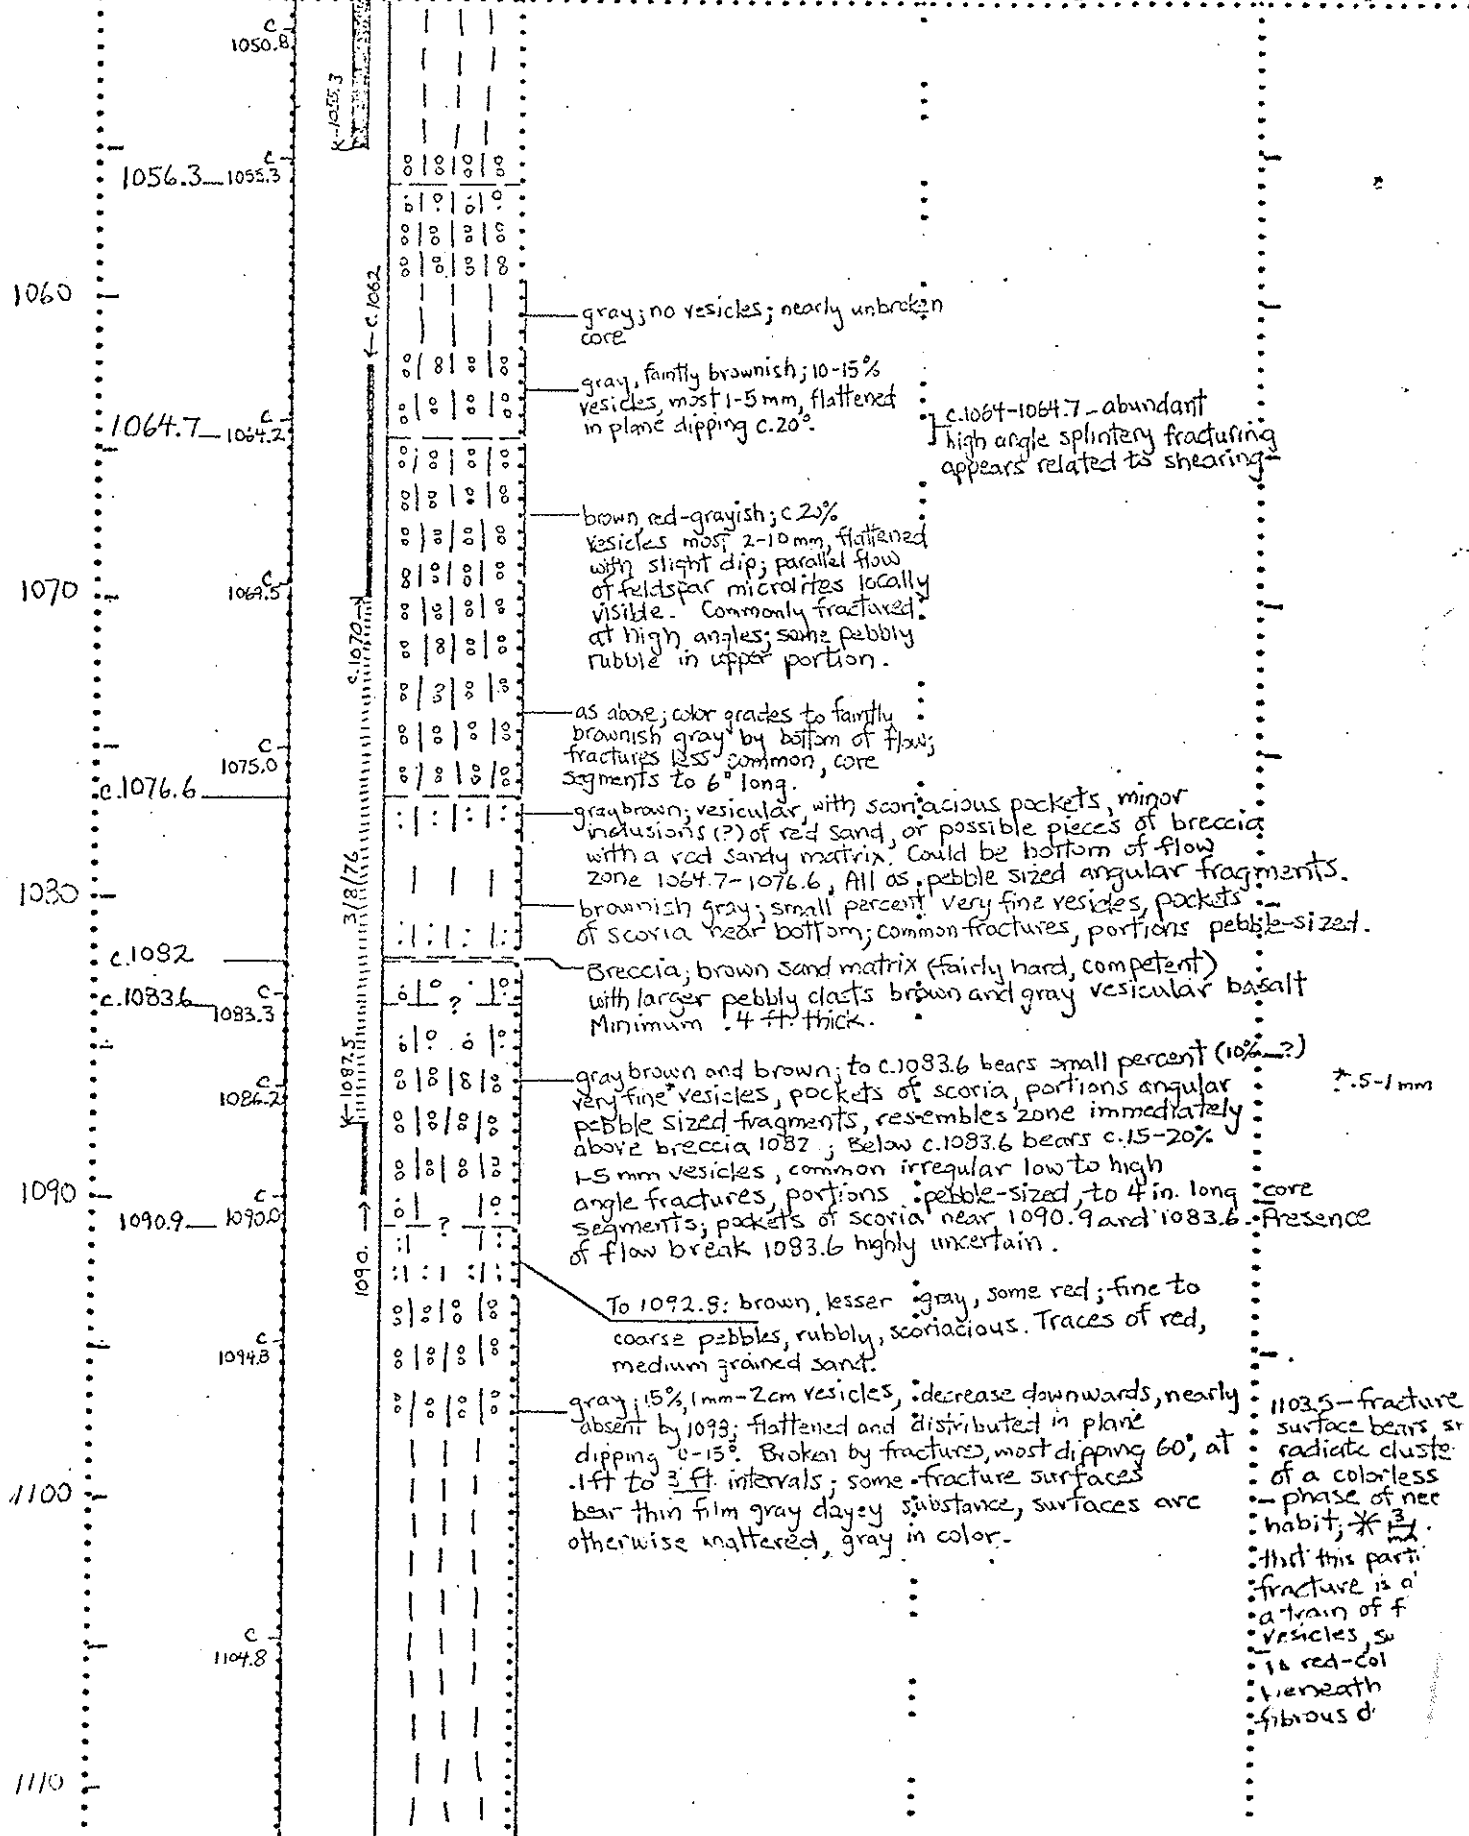 c
1050.8
K-1055.3
c
1056.3 1055.3
1060
← c.1062
gray; no vesicles; nearly unbroken
core
gray, faintly brownish; 10-15%
vesicles, most 1-5 mm, flattened
in plane dipping c.20°.
c
1064.7 1064.2
c.1064-1064.7 - abundant
high angle splintery fracturing
appears related to shearing
brown, red-grayish; c.20%
vesicles most 2-10 mm, flattened
with slight dip; parallel flow
of feldspar microlites locally
visible. Commonly fractured
at high angles; some pebbly
rubble in upper portion.
1070
c
1069.5
c.1070→
as above; color grades to faintly
brownish gray by bottom of flow;
fractures less common, core
segments to 6" long.
c
1075.0
c.1076.6
gray brown; vesicular, with scoriacious pockets, minor
inclusions (?) of red sand, or possible pieces of breccia
with a red sandy matrix. Could be bottom of flow
zone 1064.7-1076.6, All as pebble sized angular fragments.
3/8/76
1030
brownish gray; small percent very fine vesicles, pockets
of scoria near bottom; common fractures, portions pebble-sized.
c.1082
Breccia; brown sand matrix (fairly hard, competent)
with larger pebbly clasts brown and gray vesicular basalt
Minimum .4 ft. thick.
c.1083.6
c
1083.3
?
K-1087.5
gray brown and brown; to c.1083.6 bears small percent (10%—?)
very fine* vesicles, pockets of scoria, portions angular
pebble sized fragments, resembles zone immediately
above breccia 1082; Below c.1083.6 bears c.15-20%
1-5 mm vesicles, common irregular low to high
angle fractures, portions pebble-sized, to 4 in. long core
segments; pockets of scoria near 1090.9 and 1083.6. Presence
of flow break 1083.6 highly uncertain.
*.5-1 mm
c
1086.2
1090
c
1090.9 1090.0
?
1090. →
To 1092.8: brown, lesser gray, some red; fine to
coarse pebbles, rubbly, scoriacious. Traces of red,
medium grained sand.
c
1094.8
gray; 15%, 1mm-2cm vesicles, decrease downwards, nearly
absent by 1098; flattened and distributed in plane
dipping 0-15°. Broken by fractures, most dipping 60°, at
.1ft to 3 ft. intervals; some fracture surfaces
bear thin film gray clayey substance, surfaces are
otherwise unaltered, gray in color.
1103.5-fracture
surface bears
radiate cluste
of a colorless
phase of nee
habit; *
that this parti
fracture is a
a train of f
vesicles, su
is red-col
beneath
fibrous d
1100
c
1104.8
1110